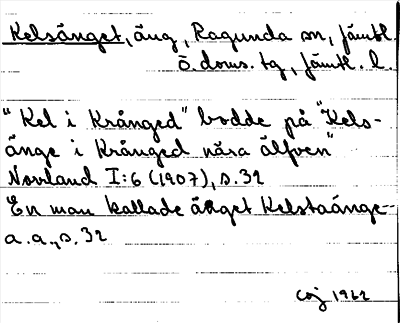 Kelsänget, äng, Ragunda sn, Jämtl.
ö. doms. tg, Jämtl. l.
"Kel i Krånged" bodde på "Kels-
änge i Krånged nära älfven"
Norrland I:6 (1907), s. 32
En man kallade änget Kelstaänge-
a.a., s. 32
1962